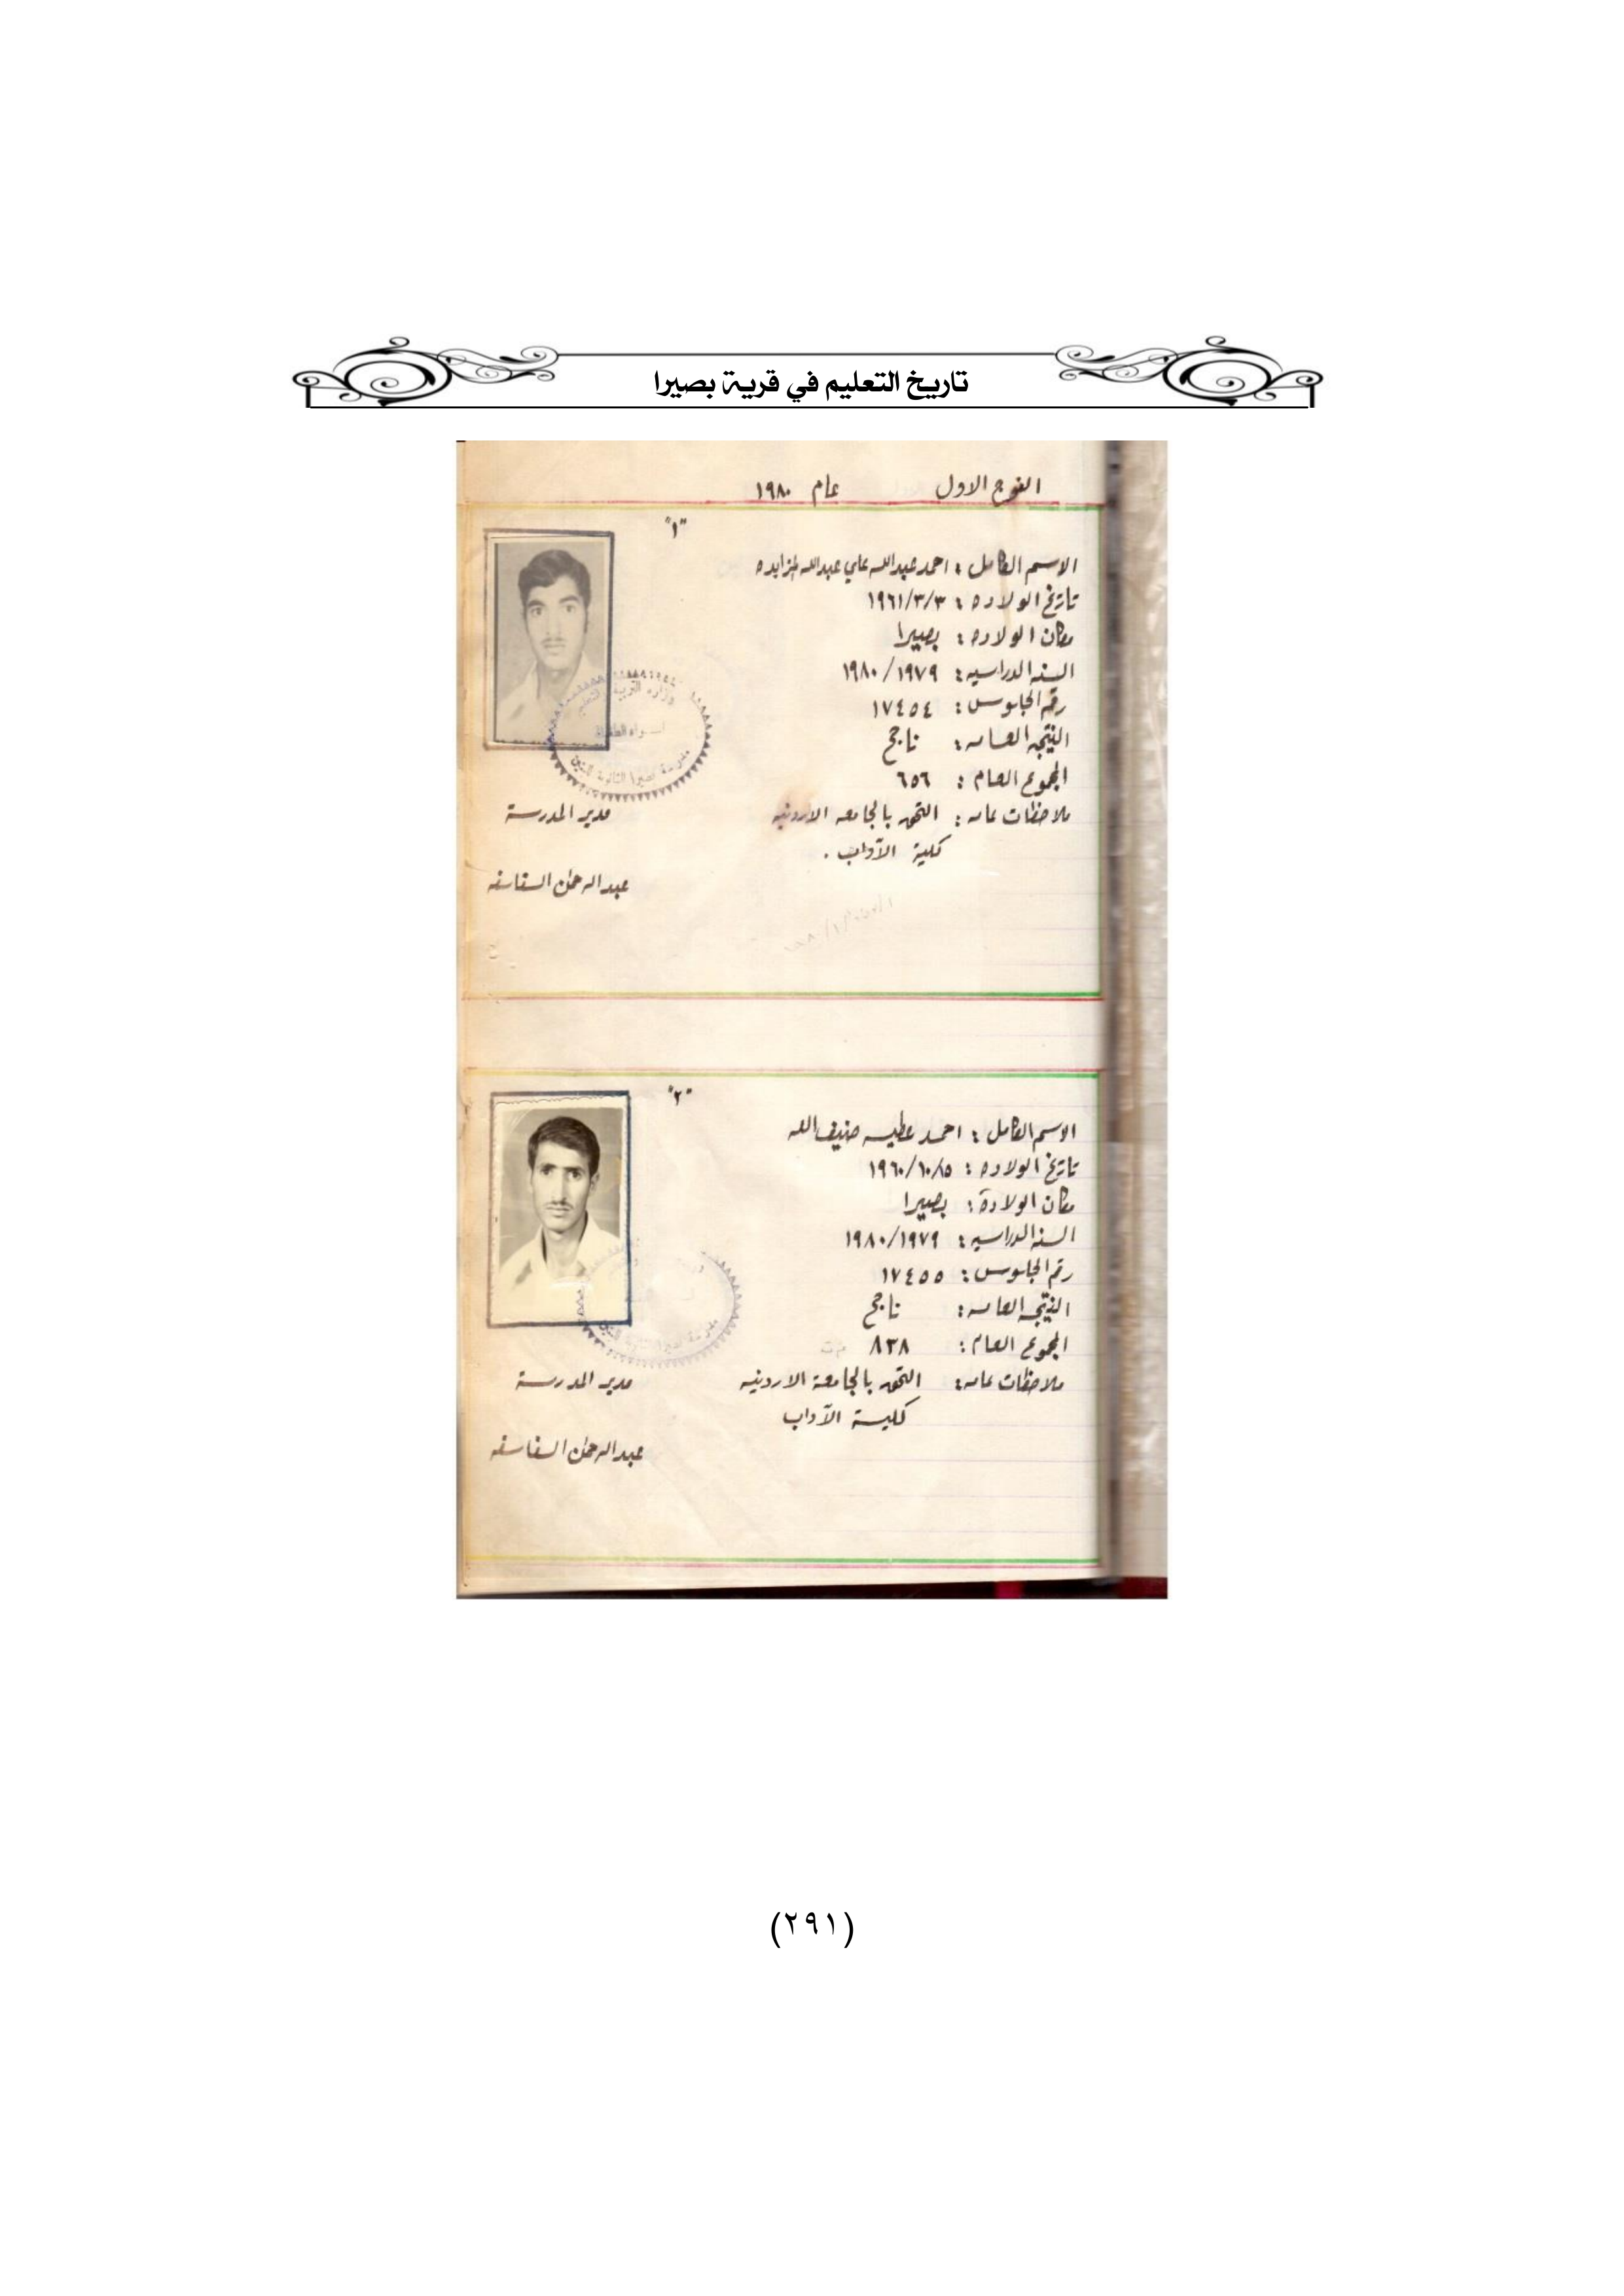 تاريخ التعليم في قرية بصيرا
الفوج الاول عام ١٩٨٠
"١"
الاسم الكامل : احمد عبدالله علي عبدالله المزايده
تاريخ الولاده : ١٩٦١/٣/٣
مكان الولاده : بصيرا
السنه الدراسيه : ١٩٨٠/١٩٧٩
رقم الجلوس : ١٧٤٥٤
النتيجه العامه : ناجح
المجموع العام : ٦٥٦
ملاحظات عامه : التحق بالجامعه الاردنيه
كلية الآداب .
وزارة التربية والتعليم
لواء الطفيلة
مدرسة بصيرا الثانوية للبنين
مدير المدرسة
عبدالرحمن السفاسفه
"٢"
الاسم الكامل : احمد عطيه ضيف الله
تاريخ الولاده : ١٩٦٠/١٠/٥
مكان الولادة : بصيرا
السنه الدراسيه : ١٩٨٠/١٩٧٩
رقم الجلوس : ١٧٤٥٥
النتيجه العامه : ناجح
المجموع العام : ٨٣٨
ملاحظات عامه : التحق بالجامعة الاردنيه
كلية الآداب
مدير المدرسة
عبدالرحمن السفاسفه
(٢٩١)